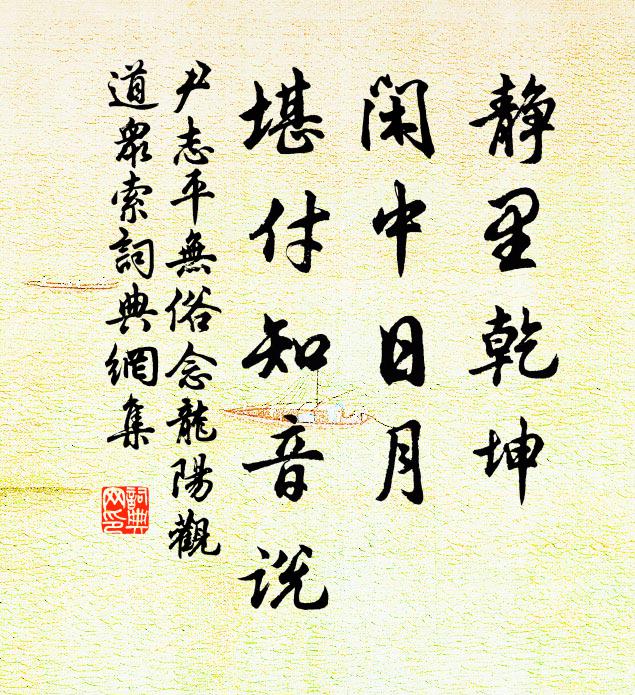 静里乾坤
闲中日月
堪付知音说
尹志平無俗念龍陽觀
道眾索詞典網集
詞典
网印